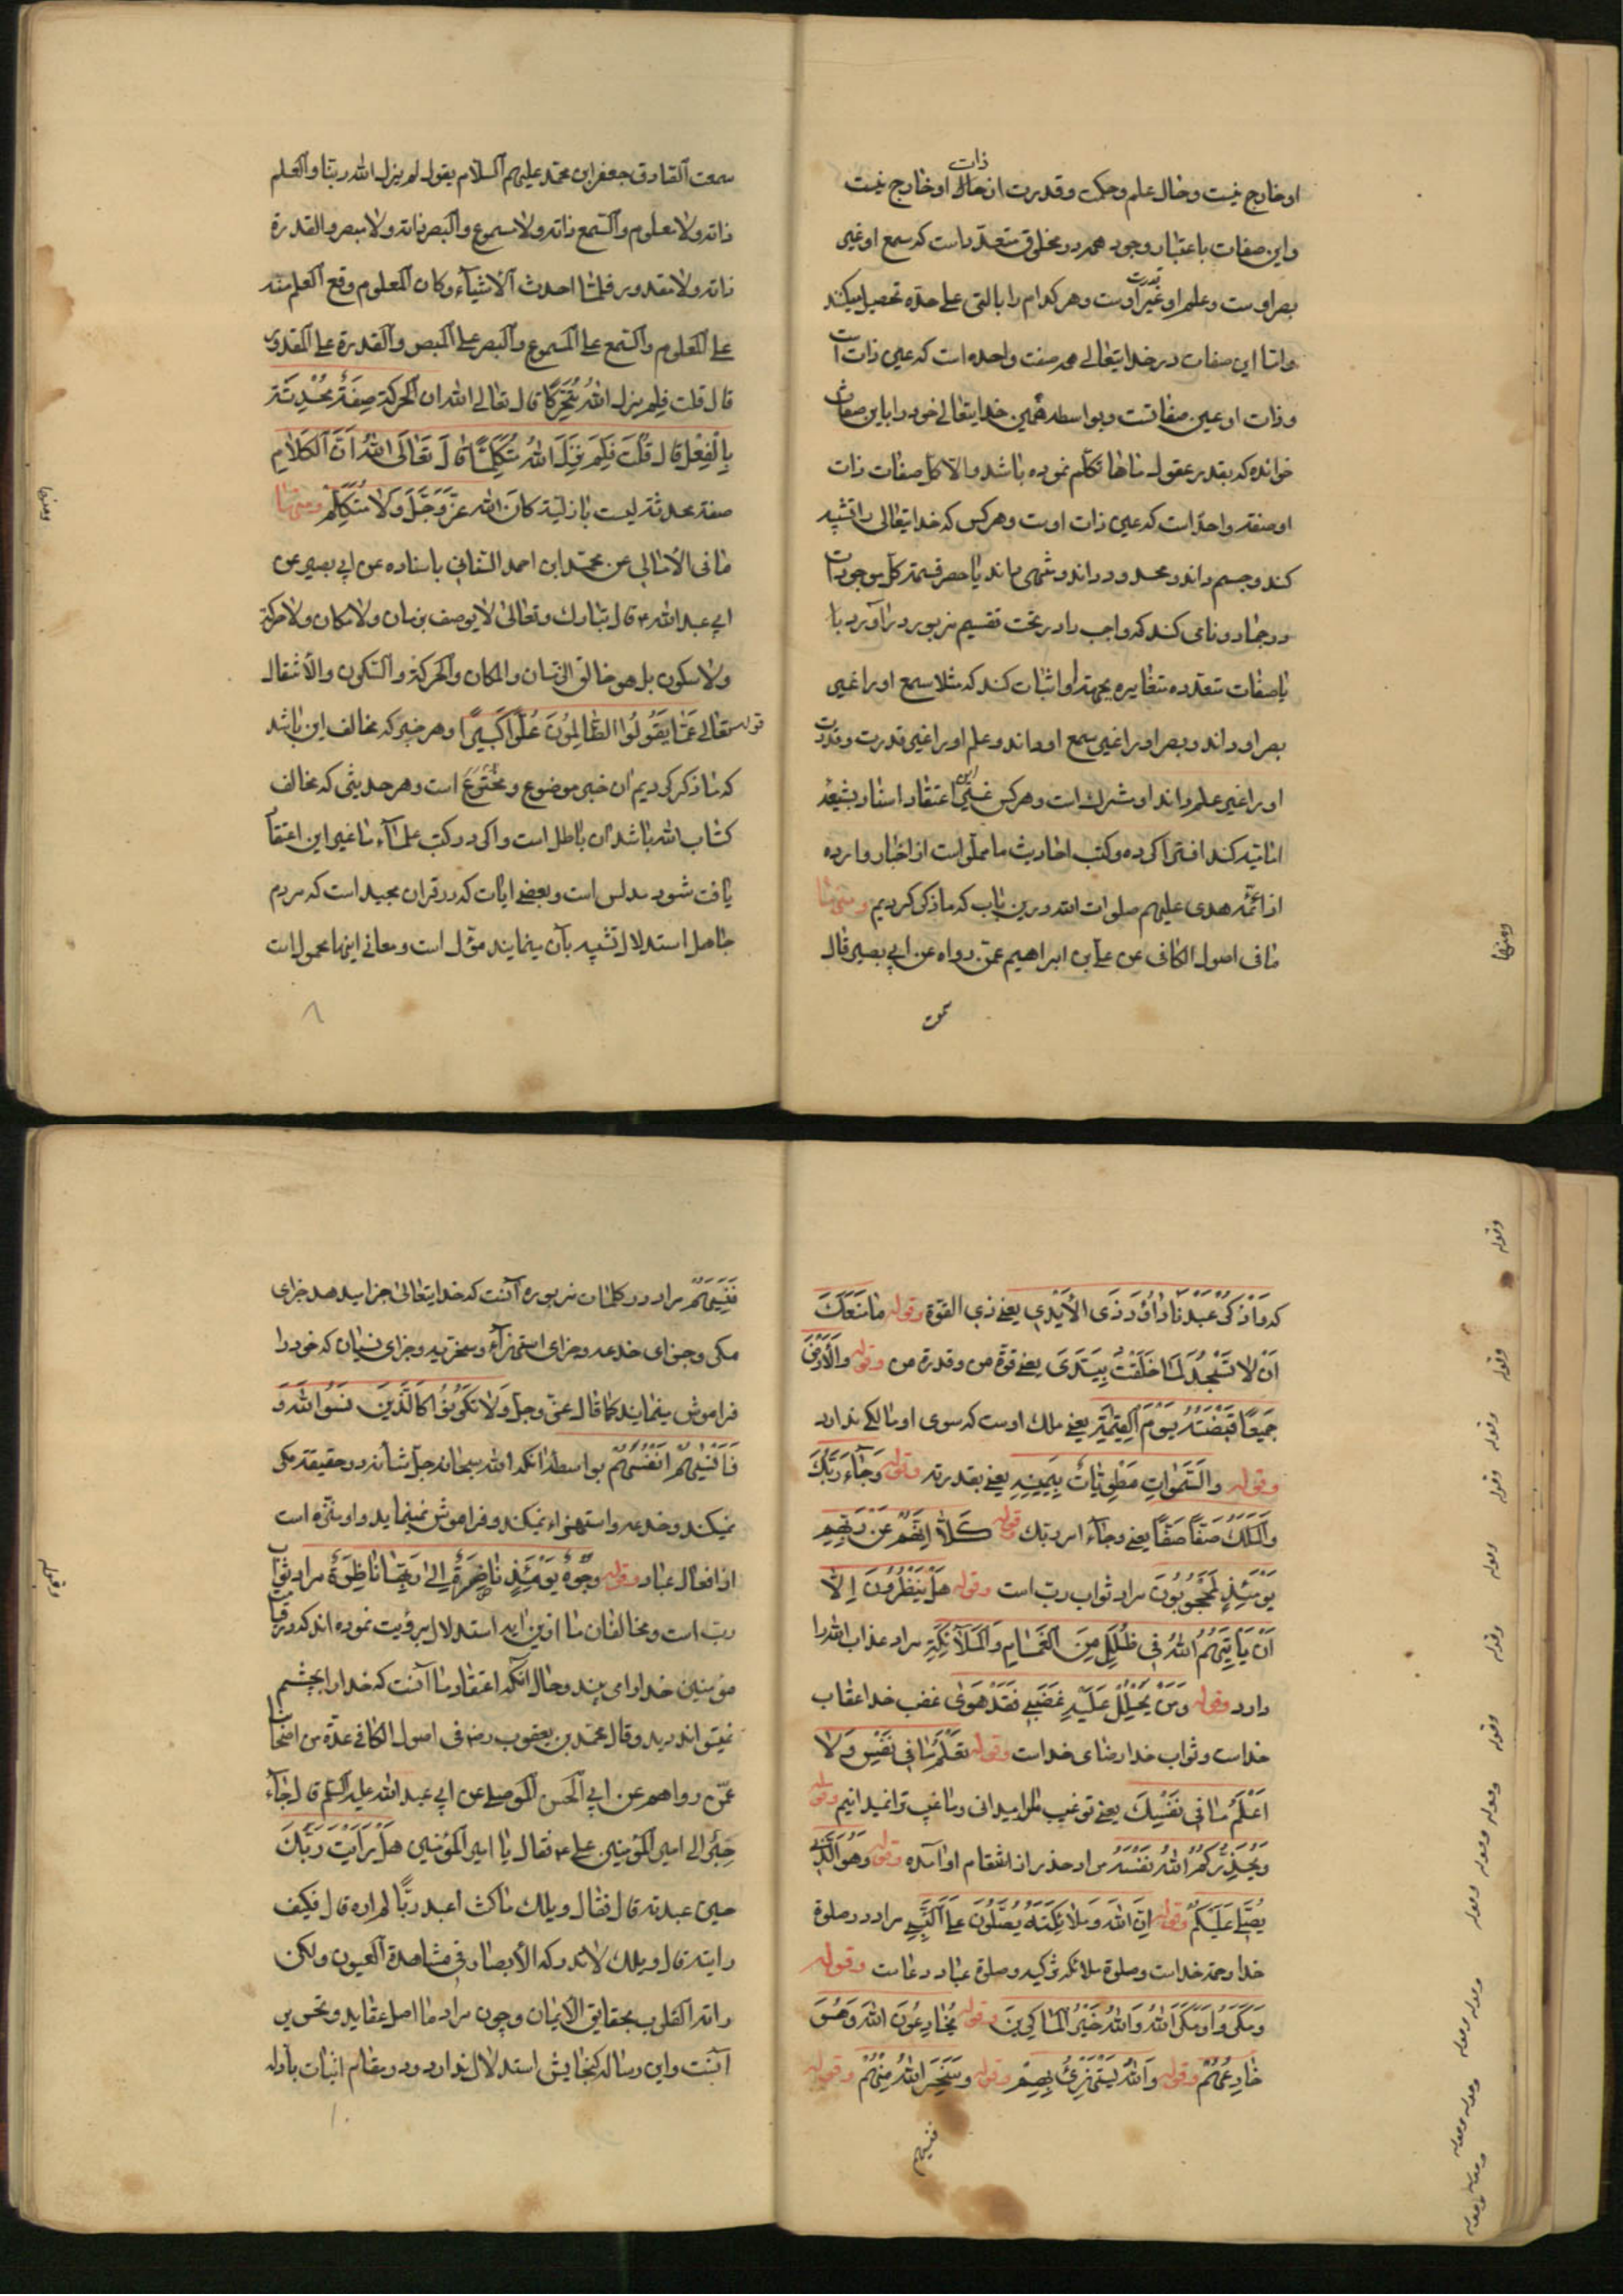 ذات
او خارج نیست و حال علم و حکمت و قدرت از حال او خارج نیست
و این صفات باعتبار وجود همه در مخلوق متعدّد است که سمع او غیر
قدرت
بصر اوست و علم او غیر اوست و هر کدام را بالتی علی حدّه تحصیل میکند
و اما این صفات در خدایتعالی همه صفت واحده است که عین ذات است
و ذات او عین صفاتست و بواسطه همین خدایتعالی خود را باین صفات
خوانده که بقدر عقول ماها تکلّم نموده باشد والّا کل صفات ذات
او صفة واحد است که عین ذات اوست و هر کس که خدایتعالی را تشبیه
کند و جسم داند و محدود داند و شیء داند یا حصر قسمة کل موجودات
در جماد و نامی کند که واجب را در تحت تقسیم مزبور درآورد یا
با صفات متعدده متغایره بجهة او اثبات کند که مثلا سمع او را غیر
بصر او داند و بصر او را غیر سمع او داند و علم او را غیر قدرت و قدرت
او را غیر علم داند او مشرک است و هر کس غیر این اعتقاد اسناد بشیعه
امامیّه کند افترا کرده و کتب احادیث ما مملوّ است از اخبار وارده
از ائمّه هدی علیهم صلوات الله درین باب که ما ذکر کردیم و منها
ما فی اصول الکافی عن علی بن ابراهیم عمّن رواه عن ابی بصیر قال
سمعت
ومنها
سمعت الصّادق جعفر ابن محمّد علیهم السّلام یقول لم یزل الله ربنا والعلم
ذاته ولا معلوم والسّمع ذاته ولا مسموع والبصر ذاته ولا مبصر والقدرة
ذاته ولا مقدور فلمّا احدث الأشیاء وکان المعلوم وقع العلم منه
علی المعلوم والسّمع علی المسموع والبصر علی المبصر والقدرة علی المقدور
قال قلت فلم یزل اللهُ مُتَحَرِّکًا قال تعالی الله ان الحرکة صِفَةٌ مُحْدَثَة
بِالْفِعْلِ قال قُلْتُ فَلَمْ یَزَلِ اللهُ مُتَکَلِّمًا قالَ تَعَالَی اللهُ اَنَّ الکَلامَ
صفة محدثة لیست بازلیّة کان الله عَزَّ وَجَلَّ وَلا مُتَکَلِّم و منها
ما فی الأمالی عن محمّد ابن احمد السّنانی باسناده عن ابی بصیر عن
ابی عبد الله ع قال ان الله تبارک وتعالی لا یوصف بزمان ولا مکان ولا حرکة
ولا سکون بل هو خالق الزّمان والمکان والحرکة والسّکون والأنتقال
تعالی عَمّا یَقُولُوا الظّالِمُونَ عُلُوًّا کَبیرًا و هر خبر که مخالف این باشد
قوله
که ما ذکر کردیم ان خبر موضوع و مخترع است و هر حدیثی که مخالف
کتاب الله باشد ان باطل است و اگر در کتب علماء ما غیر این اعتقاد
یافت شود مدلس است و بعضی ایات که در قران مجید است که مردم
جاهل استدلال تشبیه بآن مینمایند مؤوّل است و معانی اینها محمول است
ومنها
۸
که وَاذْکُرْ عَبْدَنَا دَاوُدَ ذَی الأَیْدِی یعنی ذی القوّة وقوله مَا مَنَعَکَ
اَنْ لا تَسْجُدَ لِمَا خَلَقْتُ بِیَدَیَّ یعنی قوّة من و قدرة من وقوله وَالْاَرْضُ
جَمِیعًا قَبْضَتُهُ یَوْمَ الْقِیٰمَةِ یعنی ملک اوست که سوی او مالکی ندارد
وقوله والسَّمٰوَاتِ مَطْوِیّاتٌ بِیَمِینِهِ یعنی بقدرته وقوله وَجَاءَ رَبُّکَ
وَالْمَلَکُ صَفًّا صَفًّا یعنی وجاء امر ربّک وقوله کَلّا اِنَّهُمْ عَنْ رَبِّهِمْ
یَوْمَئِذٍ لَمَحْجُوبُونَ مراد ثواب ربّ است وقوله هَلْ یَنْظُرُونَ اِلّا
اَنْ یَأْتِیَهُمُ اللهُ فِی ظُلَلٍ مِنَ الْغَمَامِ وَالْمَلآئِکَةِ مراد عذاب الله را
دارد وقوله وَمَنْ یَحْلِلْ عَلَیْهِ غَضَبِی فَقَدْ هَوٰی غضب خدا عقاب
خداست و ثواب خدا رضای خداست وقوله تَعْلَمُ مَا فِی نَفْسِی وَلا
اَعْلَمُ مَا فِی نَفْسِکَ یعنی تو غیب مرا میدانی و ما غیب ترا نمیدانیم وقوله
وَیُحَذِّرُکُمُ اللهُ نَفْسَهُ مراد حذر از انتقام او آمده وقوله وَهُوَ الَّذِی
یُصَلِّی عَلَیْکُمْ وقوله اِنَّ اللهَ وَمَلائِکَتَهُ یُصَلُّونَ عَلَی النَّبِیِّ مراد در صلوة
خدا رحمة خداست و صلوة ملائکه تزکیه و صلوة عباد دعاست وقوله
وَمَکَرُوا وَمَکَرَ اللهُ وَاللهُ خَیْرُ الْمَاکِرِینَ وقوله یُخَادِعُونَ اللهَ وَهُوَ
خَادِعُهُمْ وقوله وَاللهُ یَسْتَهْزِئُ بِهِمْ وقوله وسَخِرَ اللهُ مِنْهُمْ وقوله
فنسیهم
وقوله
وقوله
وقوله
وقوله
وقوله
وقوله
وقوله
وقوله
وقوله
وقوله
وقوله
وقوله
فَنَسِیَهُمْ مراد در کلمات مزبوره آنست که خدایتعالی جزا میدهد جزای
مکر و جزای خدعه و جزای استهزاء و سخریه و جزای نسیان که خود را
فراموش مینمایند کما قال عزّ وجلّ وَلا تَکُونُوا کَالَّذِینَ نَسُوا اللهَ وَ
فَاَنْسٰیهُمْ اَنْفُسَهُمْ بواسطه انکه الله سبحانه جلّ شأنه در حقیقة مکر
نمیکند و خدعه و استهزاء نمیکند و فراموش نمینماید و او منزّه است
از افعال عباد وقوله وُجُوهٌ یَوْمَئِذٍ نَاضِرَةٌ اِلٰی رَبِّهَا نَاظِرَةٌ مراد ثواب
ربّ است و مخالفان ما ازین ایه استدلال برؤیت نموده اند که در قیامت
مؤمنین خدا را می بیند و حال انکه اعتقاد ما آنست که خدا را بچشم
نمیتواند دید و قال محمّد بن یعقوب رضه فی اصول الکافی عدّة من اصحابنا
عمّن رواهم عن ابی الحسن الموصلی عن ابی عبد الله علیه السّلم قال جاء
حِبْرٌ الی امیر المؤمنین علی ع فقال یا امیر المؤمنین هَلْ رَاَیْتَ رَبَّکَ
حین عبدته قال فقال ویلک ما کنت اعبد ربًّا لم اره قال فکیف
رایته قال ویلک لا تدرکه الأبصار فی مشاهدة العیون ولکن
راته القلوب بحقایق الأیمان و چون مراد ما اصل عقاید و تحریر
آنست و این رساله گنجایش استدلال ندارد و در مقام اثبات بادله
وقوله
۱۰